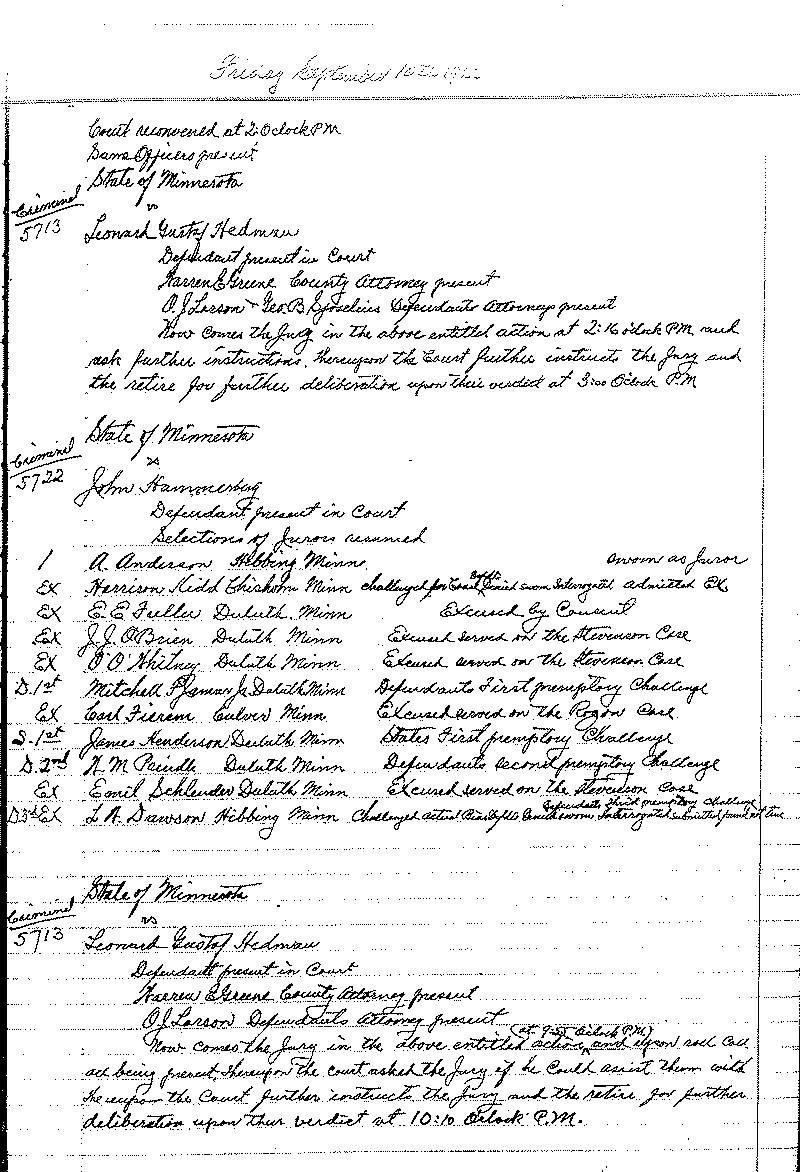 Friday September 16th
Court reconvened at 2 Oclock P.M
Same Officers present
State of Minnesota
vs
Criminal
5713
Leonard Gustaf Hedman
Defendant present in Court
Warren E Greene County Attorney present
O. J. Larson + Geo. B. Sjoselius Defendants Attorneys present
Now comes the Jury in the above entitled action at 2:16 oclock P.M. and
ask further instructions, thereupon the Court further instructs the Jury and
the retire for further deliberation upon their verdict at 3:00 Oclock P.M
State of Minnesota
Criminal
vs
5722
John Hammerberg
Defendant present in Court
Selections of Jurors resumed
1 A. Anderson Hibbing Minn sworn as Juror
Ex Harrison Kidd Chisholm Minn challenged for sworn Interrogated admitted Ex
Ex E E Fuller Duluth Minn Excused by Consent
Ex J. J. O'Brien Duluth Minn Excused served on the Stevenson Case
Ex O O Whitney Duluth Minn Excused served on the Stevenson Case
D. 1st Mitchell Jr. Duluth Minn Defendants First premptory Challenge
Ex Carl Culver Minn Excused served on the Case
S. 1st James Henderson Duluth Minn States First premptory Challenge
D. 2nd Duluth Minn Defendants second premptory Challenge
Ex Emil Schlender Duluth Minn Excused served on the Stevenson Case
Defendants third premptory Challenge
D3d Ex Dawson Hibbing Minn Challenged actual sworn Interrogated submitted found not true
State of Minnesota
vs
Criminal
5713
Leonard Gustaf Hedman
Defendant present in Court
Warren E Greene County Attorney present
O J Larson Defendants Attorney present
Now comes the Jury in the above entitled action and upon roll call
all being present, thereupon the court asked the Jury if he could assist them with
thereupon the Court further instructs the Jury and the retire for further
deliberation upon their verdict at 10:10 Oclock P.M.